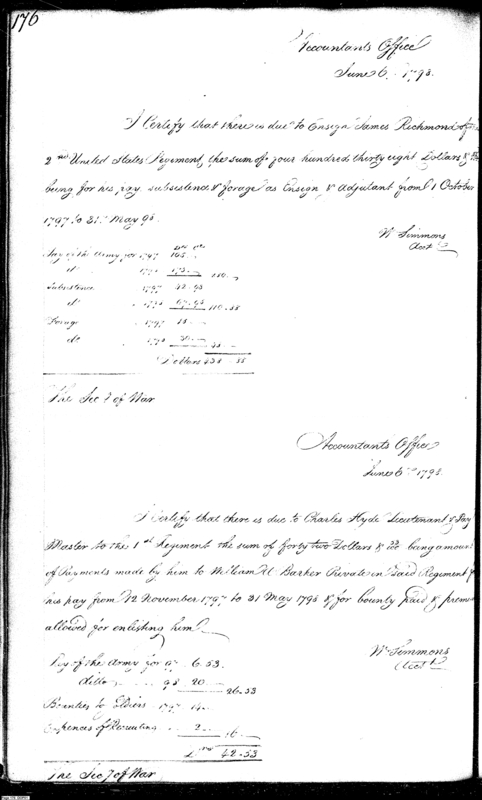 176
Accountants Office
June 6. 1798.
I Certify that there is due to Ensign James Richmond of
2nd United States Regiment, the sum of four hundred thirty eight Dollars &
being for his pay subsistence & forage as Ensign & Adjutant from 1 October
1797 to 31st May 98.
Wm Simmons
Acct
Pay of the Army for 1797 105.
do 1798 175.
Subsistence 1797 42.93
do 1798 67.95 110.88
Forage 1797 18.
do 1798 30. 48.
Dollars 438.88
The Secy of War
Accountants Office
June 6th 1798.
I Certify that there is due to Charles Hyde Lieutenant & Pay
Master to the 1st Regiment the sum of forty two Dollars & 53/100 being amount
of Payments made by him to William Barker Private in said Regiment
his pay from 12 November 1797 to 31 May 1798 & for bounty paid &
allowed for enlisting him
Wm Simmons
Acct
Pay of the Army for 97 6.53.
ditto 98 20. 26.53
Bounties to Soldiers 1797 14.
Expences of Recruiting 2. 16.
42.53
The Secy of War